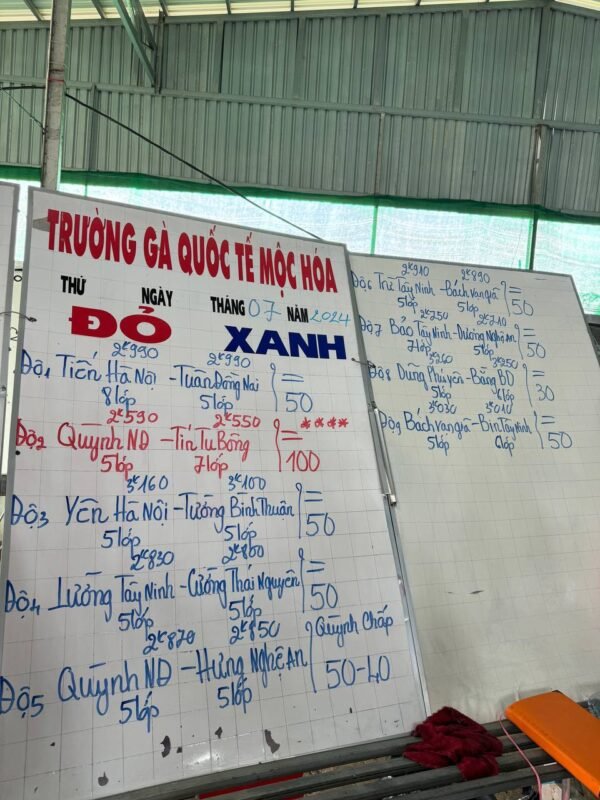 TRƯỜNG GÀ QUỐC TẾ MỘC HÓA
THỨ NGÀY THÁNG 07 NĂM 2024
ĐỎ XANH
2ᴷ990 2ᴷ990
Độ1 Tiến Hà Nội - Tuấn Đồng Nai =
8lớp 5lớp 50
2ᴷ590 2ᴷ550 ****
Độ2 Quỳnh NĐ - Tín Tu Bông =
5lớp 7lớp 100
3ᴷ160 3ᴷ100
Độ3 Yên Hà Nội - Tường Bình Thuận =
5lớp 5lớp 50
2ᴷ830 2ᴷ800
Độ4 Lường Tây Ninh - Cường Thái Nguyên =
5lớp 5lớp 50
2ᴷ870 2ᴷ850 Quỳnh Chấp
Độ5 Quỳnh NĐ - Hưng Nghệ An 50-40
5lớp 5lớp
2ᴷ910 2ᴷ890
Độ6 Trí Tây Ninh - Bách vangia =
5lớp 5lớp 50
2ᴷ750 2ᴷ710
Độ7 Bảo Tây Ninh - Dương Nghệ An =
7lớp 5lớp 50
3ᴷ260 3ᴷ250
Độ8 Dũng Phú yên - Bằng BD =
5lớp 6lớp 30
3ᴷ030 3ᴷ010
Độ9 Bách vangia - Bin Tây Ninh =
5lớp 6lớp 50